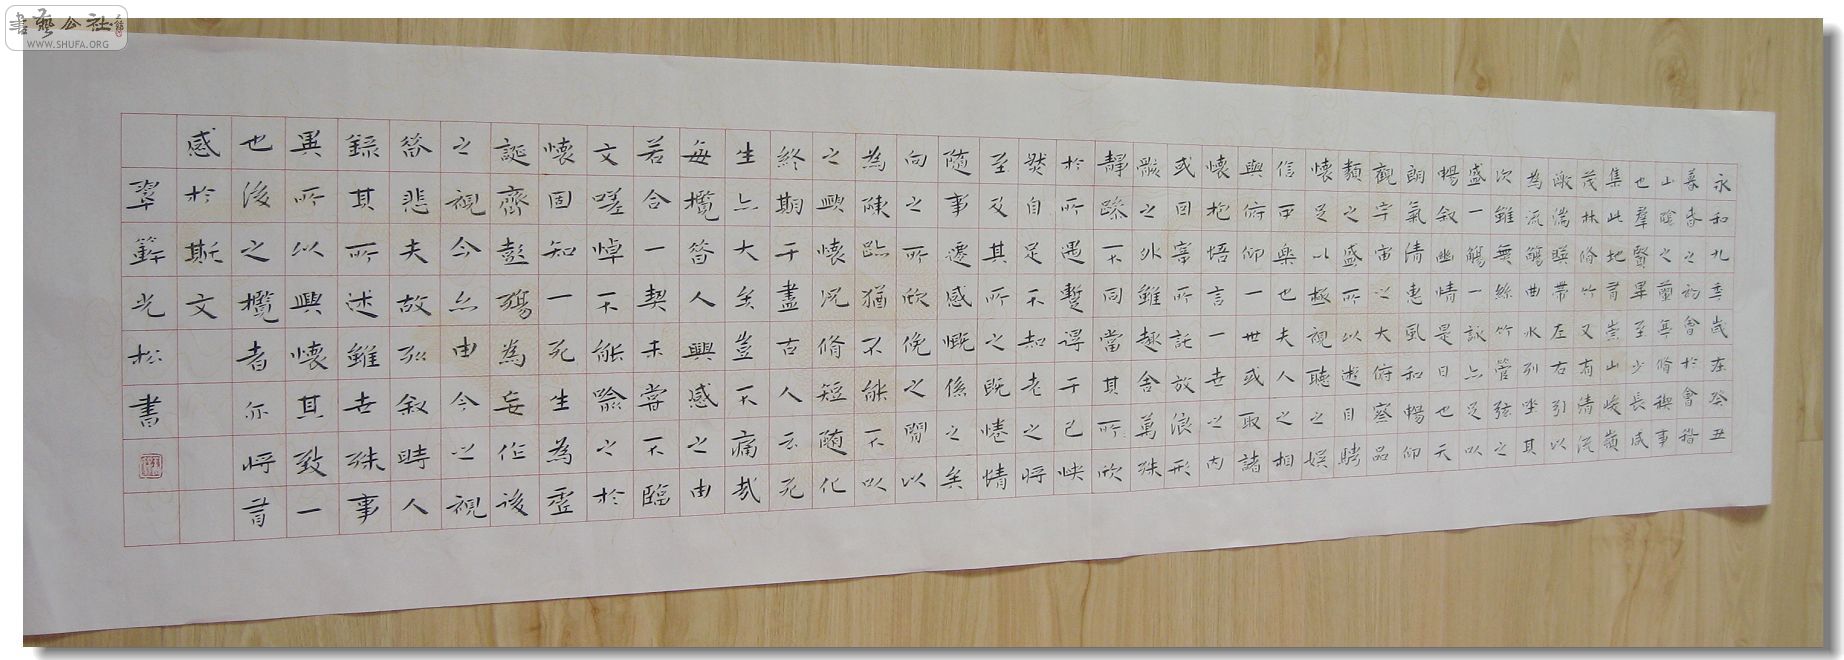 書藝公社
WWW.SHUFA.ORG
永和九年歲在癸丑
暮春之初會於會稽
山陰之蘭亭脩禊事
也群賢畢至少長咸
集此地有崇山峻嶺
茂林脩竹又有清流
激湍暎帶左右引以
為流觴曲水列坐其
次雖無絲竹管弦之
盛一觴一詠亦足以
暢叙幽情是日也天
朗氣清惠風和暢仰
觀宇宙之大俯察品
類之盛所以遊目騁
懷足以極視聽之娛
信可樂也夫人之相
與俯仰一世或取諸
懷抱悟言一世之內
或因寄所託放浪形
骸之外雖趣舍萬殊
靜躁不同當其所欣
於所遇蹔得于己怏
然自足不知老之將
至及其所之既惓情
隨事遷感慨係之矣
向之所欣俛之閒以
為陳跡猶不能不以
之興懷況脩短隨化
終期于盡古人云死
生亦大矣豈不痛哉
每攬昔人興感之由
若合一契未嘗不臨
文嗟悼不能喻之於
懷固知一死生為虛
誕齊彭殤為妄作後
之視今亦由今之視
昔悲夫故列叙時人
錄其所述雖世殊事
異所以興懷其致一
也後之攬者亦將有
感於斯文
翠光松書